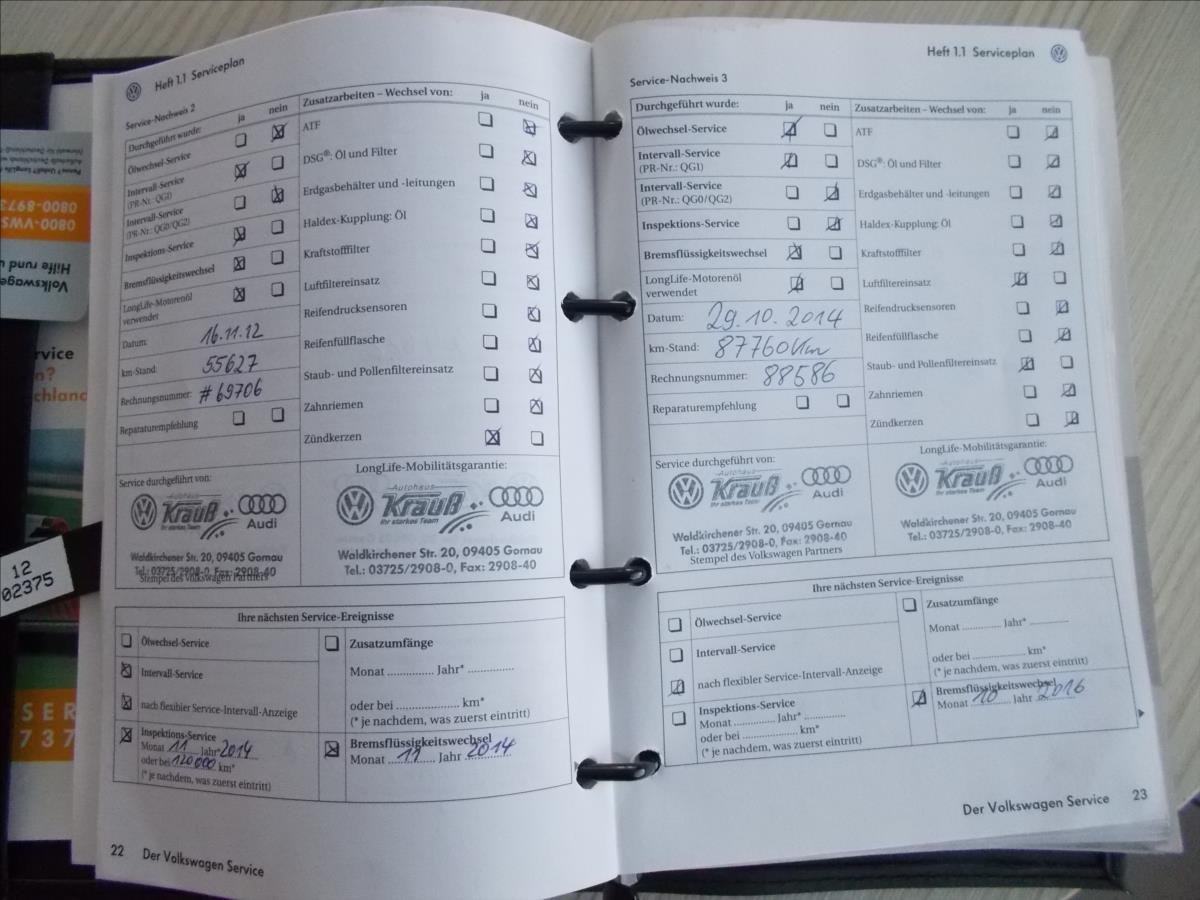 Heft 1.1 Serviceplan
Service-Nachweis 2
Durchgeführt wurde: ja nein
Ölwechsel-Service
Intervall-Service
(PR-Nr.: QG1)
Intervall-Service
(PR-Nr.: QG0/QG2)
Inspektions-Service
Bremsflüssigkeitswechsel
LongLife-Motorenöl
verwendet
Datum: 16.11.12
km-Stand: 55627
Rechnungsnummer: #69706
Reparaturempfehlung
Zusatzarbeiten – Wechsel von: ja nein
ATF
DSG®: Öl und Filter
Erdgasbehälter und -leitungen
Haldex-Kupplung: Öl
Kraftstofffilter
Luftfiltereinsatz
Reifendrucksensoren
Reifenfüllflasche
Staub- und Pollenfiltereinsatz
Zahnriemen
Zündkerzen
Service durchgeführt von:
Autohaus
Krauß
Ihr starkes Team
Audi
Waldkirchener Str. 20, 09405 Gornau
Tel.: 03725/2908-0, Fax: 2908-40
Stempel des Volkswagen Partners
LongLife-Mobilitätsgarantie:
Autohaus
Krauß
Ihr starkes Team
Audi
Waldkirchener Str. 20, 09405 Gornau
Tel.: 03725/2908-0, Fax: 2908-40
Ihre nächsten Service-Ereignisse
Ölwechsel-Service
Intervall-Service
nach flexibler Service-Intervall-Anzeige
Inspektions-Service
Monat 11 Jahr* 2014
oder bei 120000 km*
(* je nachdem, was zuerst eintritt)
Zusatzumfänge
Monat ............ Jahr* ............
oder bei .................... km*
(* je nachdem, was zuerst eintritt)
Bremsflüssigkeitswechsel
Monat 11 Jahr 2014
22 Der Volkswagen Service
Heft 1.1 Serviceplan
Service-Nachweis 3
Durchgeführt wurde: ja nein
Ölwechsel-Service
Intervall-Service
(PR-Nr.: QG1)
Intervall-Service
(PR-Nr.: QG0/QG2)
Inspektions-Service
Bremsflüssigkeitswechsel
LongLife-Motorenöl
verwendet
Datum: 29.10.2014
km-Stand: 87760 Km
Rechnungsnummer: 88586
Reparaturempfehlung
Zusatzarbeiten – Wechsel von: ja nein
ATF
DSG®: Öl und Filter
Erdgasbehälter und -leitungen
Haldex-Kupplung: Öl
Kraftstofffilter
Luftfiltereinsatz
Reifendrucksensoren
Reifenfüllflasche
Staub- und Pollenfiltereinsatz
Zahnriemen
Zündkerzen
Service durchgeführt von:
Autohaus
Krauß
Ihr starkes Team
Audi
Waldkirchener Str. 20, 09405 Gornau
Tel.: 03725/2908-0, Fax: 2908-40
Stempel des Volkswagen Partners
LongLife-Mobilitätsgarantie:
Autohaus
Krauß
Ihr starkes Team
Audi
Waldkirchener Str. 20, 09405 Gornau
Tel.: 03725/2908-0, Fax: 2908-40
Ihre nächsten Service-Ereignisse
Ölwechsel-Service
Intervall-Service
nach flexibler Service-Intervall-Anzeige
Inspektions-Service
Monat ............ Jahr* ............
oder bei .................... km*
(* je nachdem, was zuerst eintritt)
Zusatzumfänge
Monat ............ Jahr* ............
oder bei .................... km*
(* je nachdem, was zuerst eintritt)
Bremsflüssigkeitswechsel
Monat 10 Jahr 2016
Der Volkswagen Service 23
0800-VWS
Hilfe rund
Volkswage
12
02375
SER
737